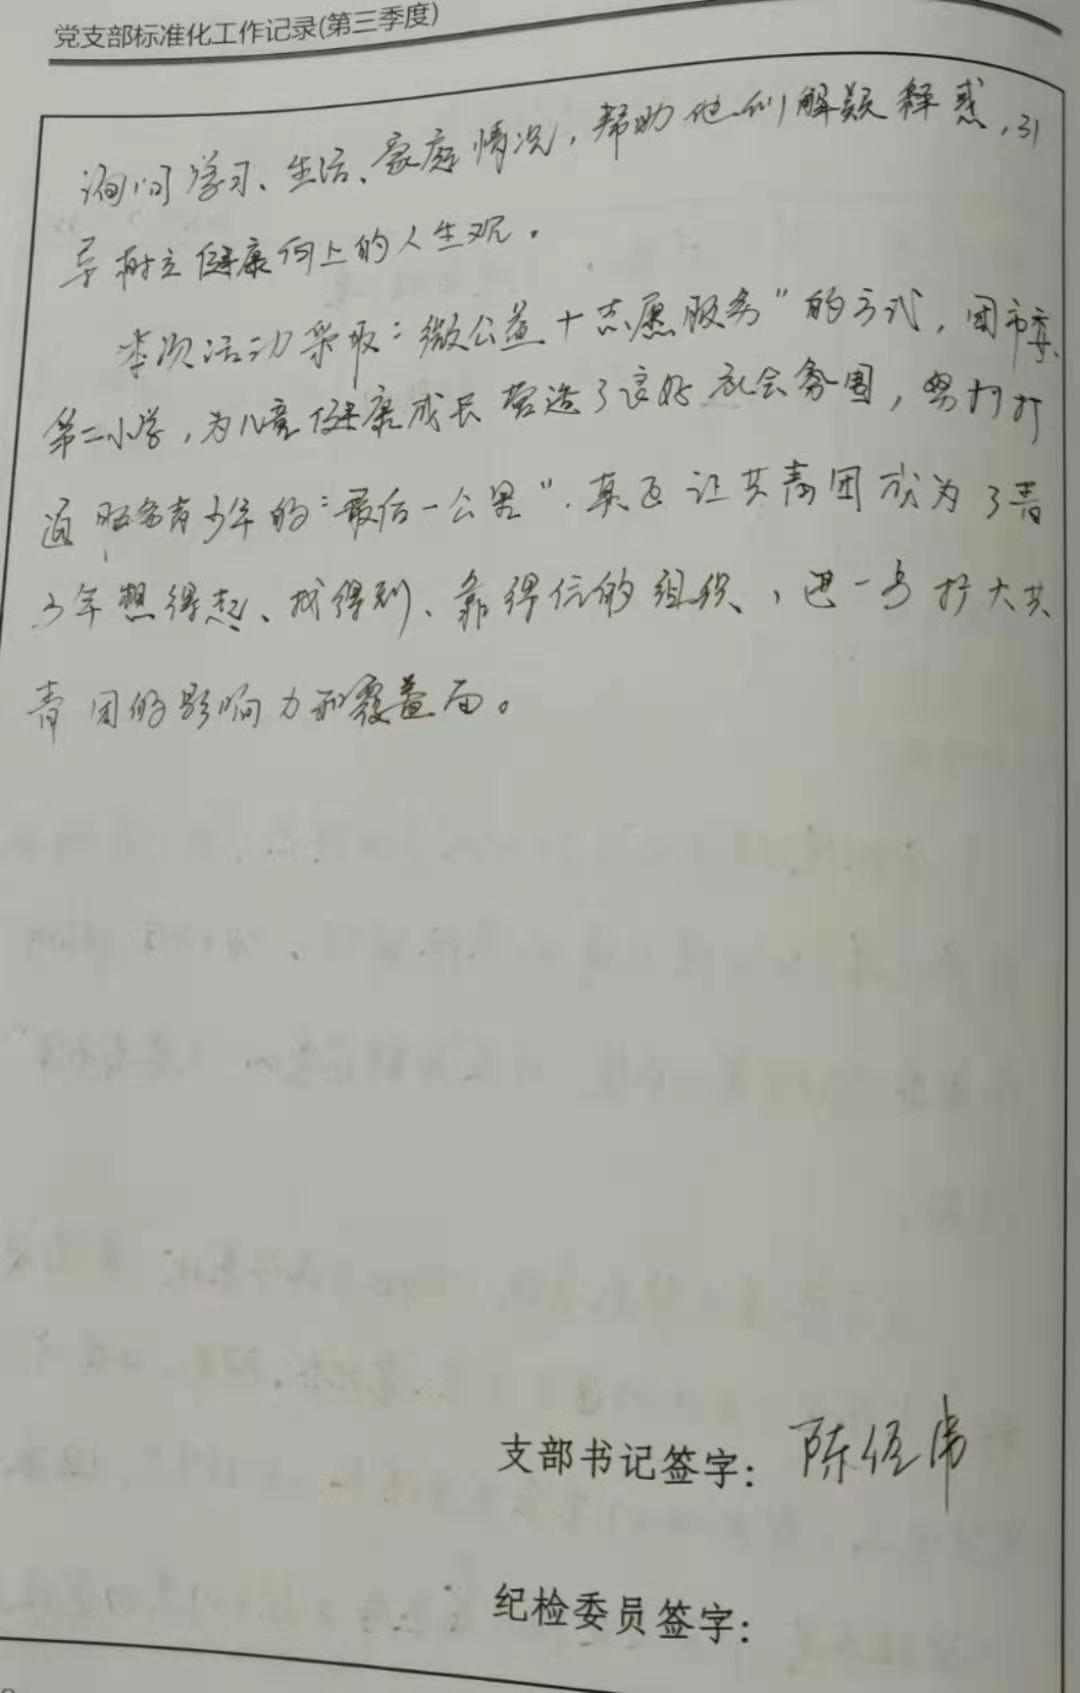 党支部标准化工作记录(第三季度)
询问学习、生活、家庭情况，帮助他们解疑释惑，引
导树立健康向上的人生观。
本次活动采取“微公益+志愿服务”的方式，团市委
第二小学，为儿童健康成长营造了良好社会氛围，努力打
通服务青少年的“最后一公里”，真正让共青团成为了青
少年想得起、找得到、靠得住的组织，进一步扩大共
青团的影响力和覆盖面。
支部书记签字：陈经伟
纪检委员签字：